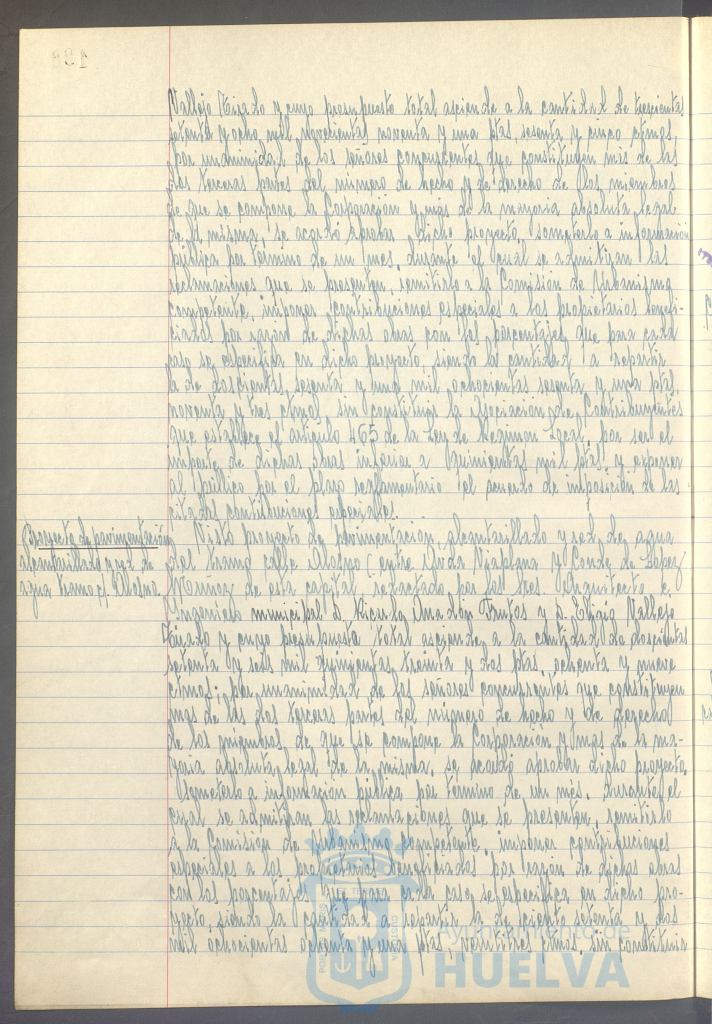 Vallejo Tirado y cuyo presupuesto total asciende a la cantidad de trescientas
setenta y ocho mil novecientas noventa y una ptas, sesenta y cinco ctmos,
por unanimidad de los señores concurrentes que constituyen más de las
dos terceras partes del número de hecho y de derecho de los miembros
de que se compone la Corporación y más de la mayoria absoluta legal
de la misma, se acordó aprobar dicho proyecto, someterlo a información
pública por término de un mes, durante el cual se admitiran las
reclamaciones que se presenten, remitirlo a la Comisión de Urbanismo
competente, imponer contribuciones especiales a los propietarios benefi-
ciados por razón de dichas obras con los porcentajes que para cada
caso se especifica en dicho proyecto, siendo la cantidad a repartir
la de doscientas sesenta y una mil ochocientas sesenta y una ptas,
noventa y tres ctmos, sin constituir la Asociación de Contribuyentes
que establece el artículo 465 de la Ley de Regimen Local, por ser el
importe de dichas obras inferior a quinientas mil ptas y exponer
al público por el plazo reglamentario el acuerdo de imposición de las
citadas contribuciones especiales.
Proyecto de pavimentación
alcantarillado y red de
agua tramo c/. Alosno.
Visto proyecto de pavimentación, alcantarillado y red de agua
del tramo calle Alosno (entre Avda Viaplana y Conde de López
Muñoz de esta capital, redactado por los Sres. Arquitecto e
Ingeniero municipal D. Ricardo Anadón Frutos y D. Eligio Vallejo
Tirado y cuyo presupuesto total asciende a la cantidad de doscientas
setenta y seis mil quinientas treinta y dos ptas, ochenta y nueve
ctmos; por unanimidad de los señores concurrentes que constituyen
mas de las dos terceras partes del número de hecho y de derecho
de los miembros de que se compone la Corporación y mas de la ma-
yoria absoluta legal de la misma, se acordó aprobar dicho proyecto,
someterlo a información pública por término de un mes, durante el
cual se admitiran las reclamaciones que se presenten, remitirlo
a la Comisión de Urbanismo competente, imponer contribuciones
especiales a los propietarios beneficiados por razón de dichas obras
con los porcentajes que para cada caso se especifica en dicho pro-
yecto, siendo la cantidad a repartir la de ciento setenta y dos
mil ochocientas ochenta y una ptas, veintitres ctmos, sin constituir
Ayuntamiento de
HUELVA